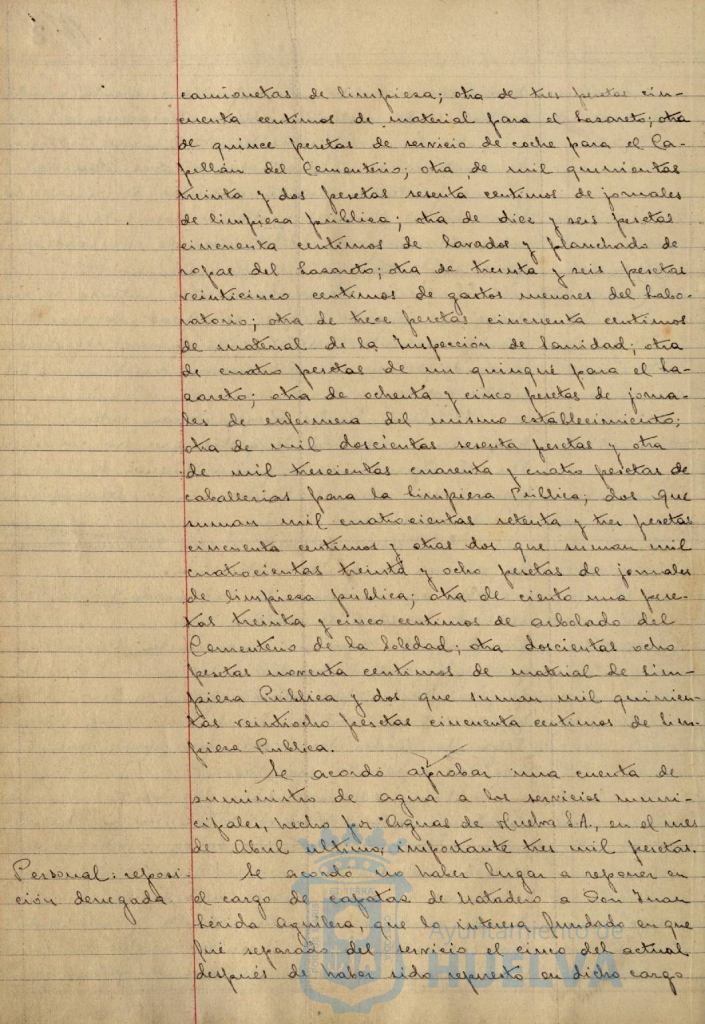 camionetas de limpieza; otra de tres pesetas cin-
cuenta centimos de material para el Lazareto; otra
de quince pesetas de servicio de coche para el Ca-
pellán del Cementerio; otra de mil quinientas
treinta y dos pesetas sesenta centimos de jornales
de limpieza pública; otra de diez y seis pesetas
cincuenta centimos de lavados y planchado de
ropas del Lazareto; otra de treinta y seis pesetas
veinticinco centimos de gastos menores del Labo-
ratorio; otra de trece pesetas cincuenta centimos
de material de la Inspección de Sanidad; otra
de cuatro pesetas de un quinqué para el La-
zareto; otra de ochenta y cinco pesetas de jorna-
les de enfermera del mismo establecimiento;
otra de mil doscientas sesenta pesetas y otra
de mil trescientas cuarenta y cuatro pesetas de
caballerias para la limpieza Pública; dos que
suman mil cuatrocientas setenta y tres pesetas
cincuenta centimos y otras dos que suman mil
cuatrocientas treinta y ocho pesetas de jornales
de limpieza pública; otra de ciento una pese-
tas treinta y cinco centimos de arbolado del
Cementerio de la Soledad; otra doscientas ocho
pesetas noventa centimos de material de Lim-
pieza Pública y dos que suman mil quinien-
tas veintiocho pesetas cincuenta centimos de lim-
pieza Publica.
Se acordó aprobar una cuenta de
suministro de agua a los servicios muni-
cipales, hecho por Aguas de Huelva S.A., en el mes
de Abril ultimo, importante tres mil pesetas.
Personal: reposi-
ción denegada
Se acordó no haber lugar a reponer en
el cargo de capataz de Matadero a Don Juan
Lérida Aguilera, que lo interesa fundado en que
fué separado del servicio el cinco del actual
después de haber sido repuesto en dicho cargo
Ayuntamiento de
HUELVA